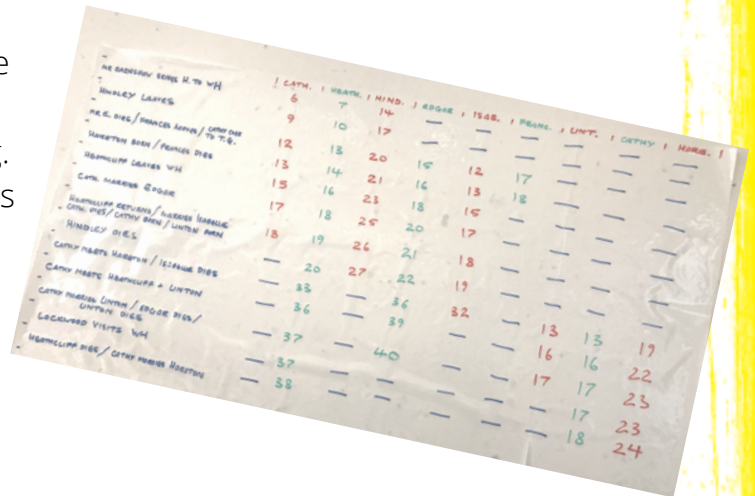 e
g.
s
| CATH. | HEATH. | HIND. | EDGAR | ISAB. | FRANC. | LINT. | CATHY | HARE. |
- MR EARNSHAW BRINGS H. TO WH 6 7 14 — — — — — —
- HINDLEY LEAVES 9 10 17 — — — — — —
- MR E. DIES / FRANCES ARRIVES / CATHY GOES
TO T.G. 12 13 20 15 12 17 — — —
- HARETON BORN / FRANCES DIES 13 14 21 16 13 18 — — —
- HEATHCLIFF LEAVES WH 15 16 23 18 15 — — —
- CATH. MARRIES EDGAR 17 18 25 20 17 — — —
- HEATHCLIFF RETURNS / MARRIES ISABELLE
CATH. DIES / CATHY BORN / LINTON BORN 18 19 26 21 18 — — —
- HINDLEY DIES — 20 27 22 19 — — —
- CATHY MEETS HARETON / ISABELLE DIES — 33 — 36 32 — 13 13 19
- CATHY MEETS HEATHCLIFF + LINTON — 36 — 39 — — 16 16 22
- CATHY MARRIES LINTON / EDGAR DIES /
LINTON DIES — 37 — 40 — — 17 17 23
- LOCKWOOD VISITS WH — 37 — — — — — 17 23
- HEATHCLIFF DIES / CATHY MARRIES HARETON — 38 — — — — — 18 24